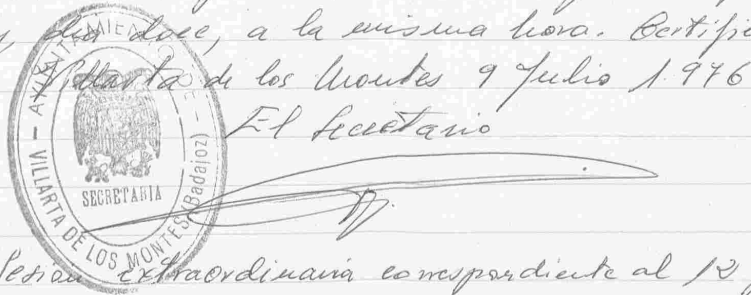 día doce, a la misma hora. Certifi
Villarta de los Montes 9 Julio 1.976
El Secretario
AYUNTAMIENTO DE
SECRETARIA
VILLARTA DE LOS MONTES (Badajoz)
Sesión extraordinaria correspondiente al 12